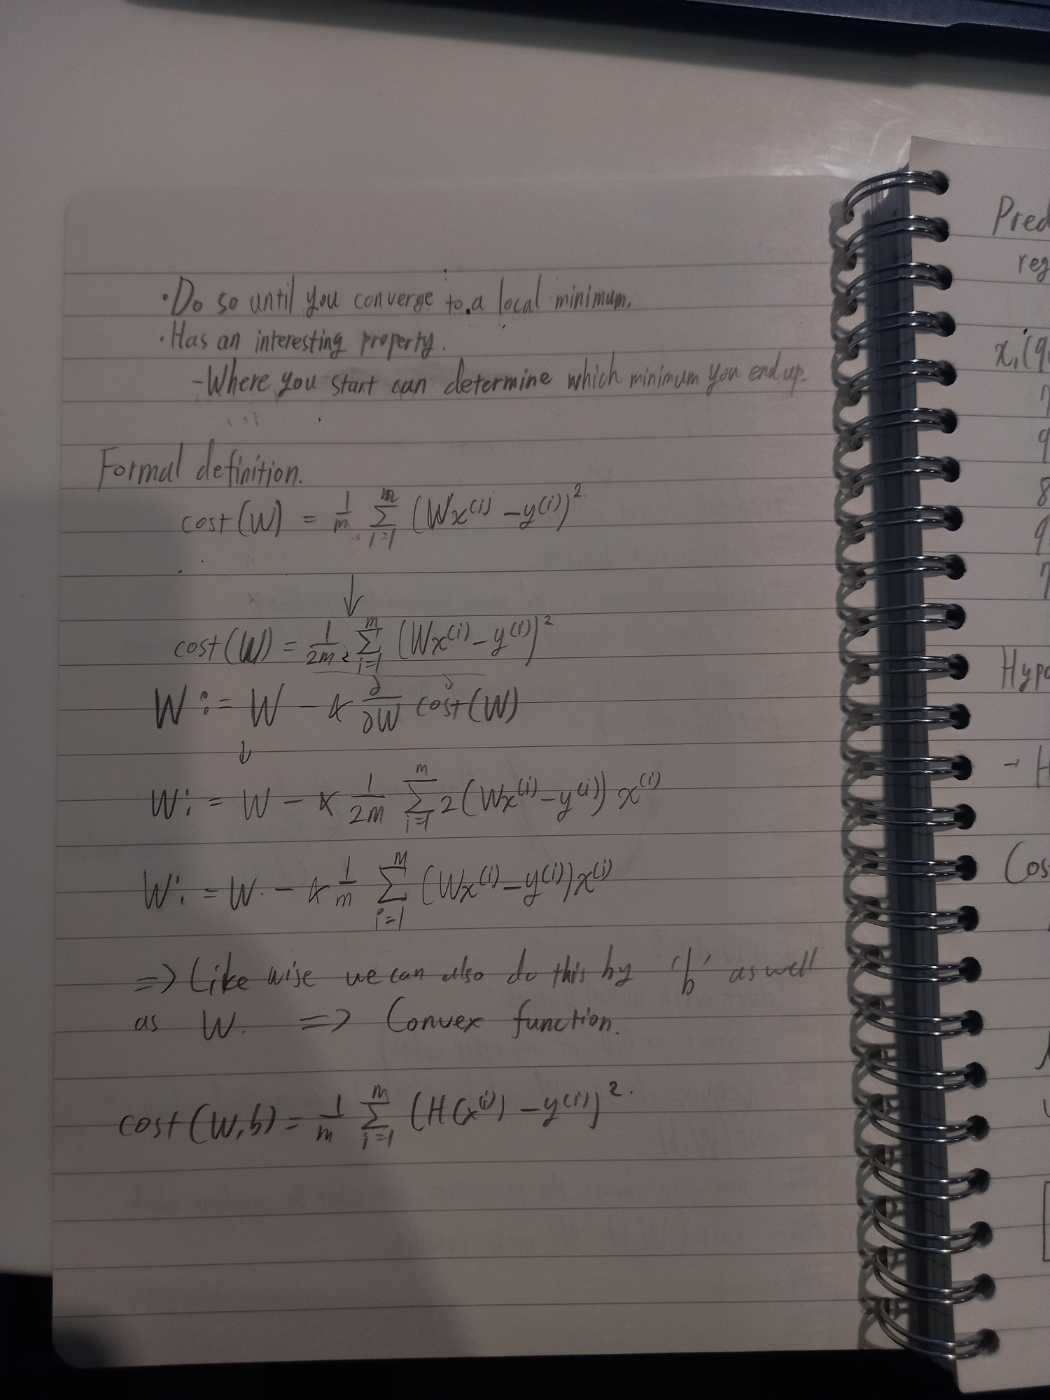 · Do so until you converge to a local minimum.
· Has an interesting property.
- Where you start can determine which minimum you end up.
Formal definition.
cost(W) = 1/m Σ_{i=1}^{m} (Wx^{(i)} - y^{(i)})^2
↓
cost(W) = 1/2m Σ_{i=1}^{m} (Wx^{(i)} - y^{(i)})^2
W := W - α ∂/∂W cost(W)
↓
W := W - α 1/2m Σ_{i=1}^{m} 2(Wx^{(i)} - y^{(i)}) x^{(i)}
W := W - α 1/m Σ_{i=1}^{m} (Wx^{(i)} - y^{(i)}) x^{(i)}
=> Like wise we can also do this by 'b' as well
as W. => Convex function.
cost(W,b) = 1/m Σ_{i=1}^{m} (H(x^{(i)}) - y^{(i)})^2.